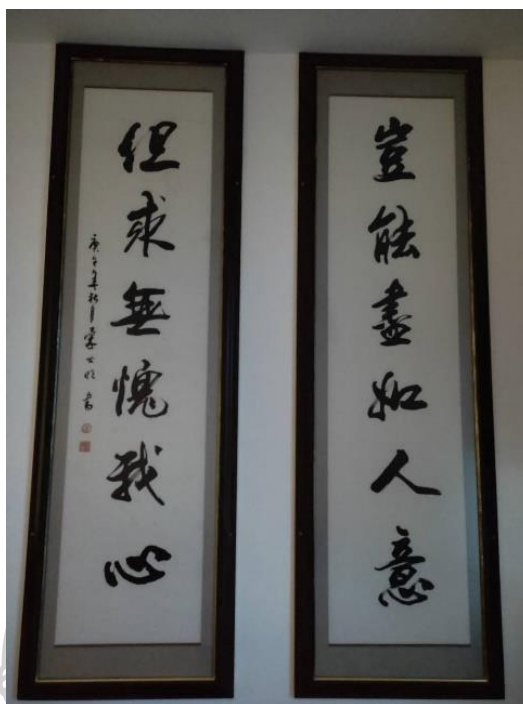 豈能盡如人意
但求無愧我心
庚午年秋月
書